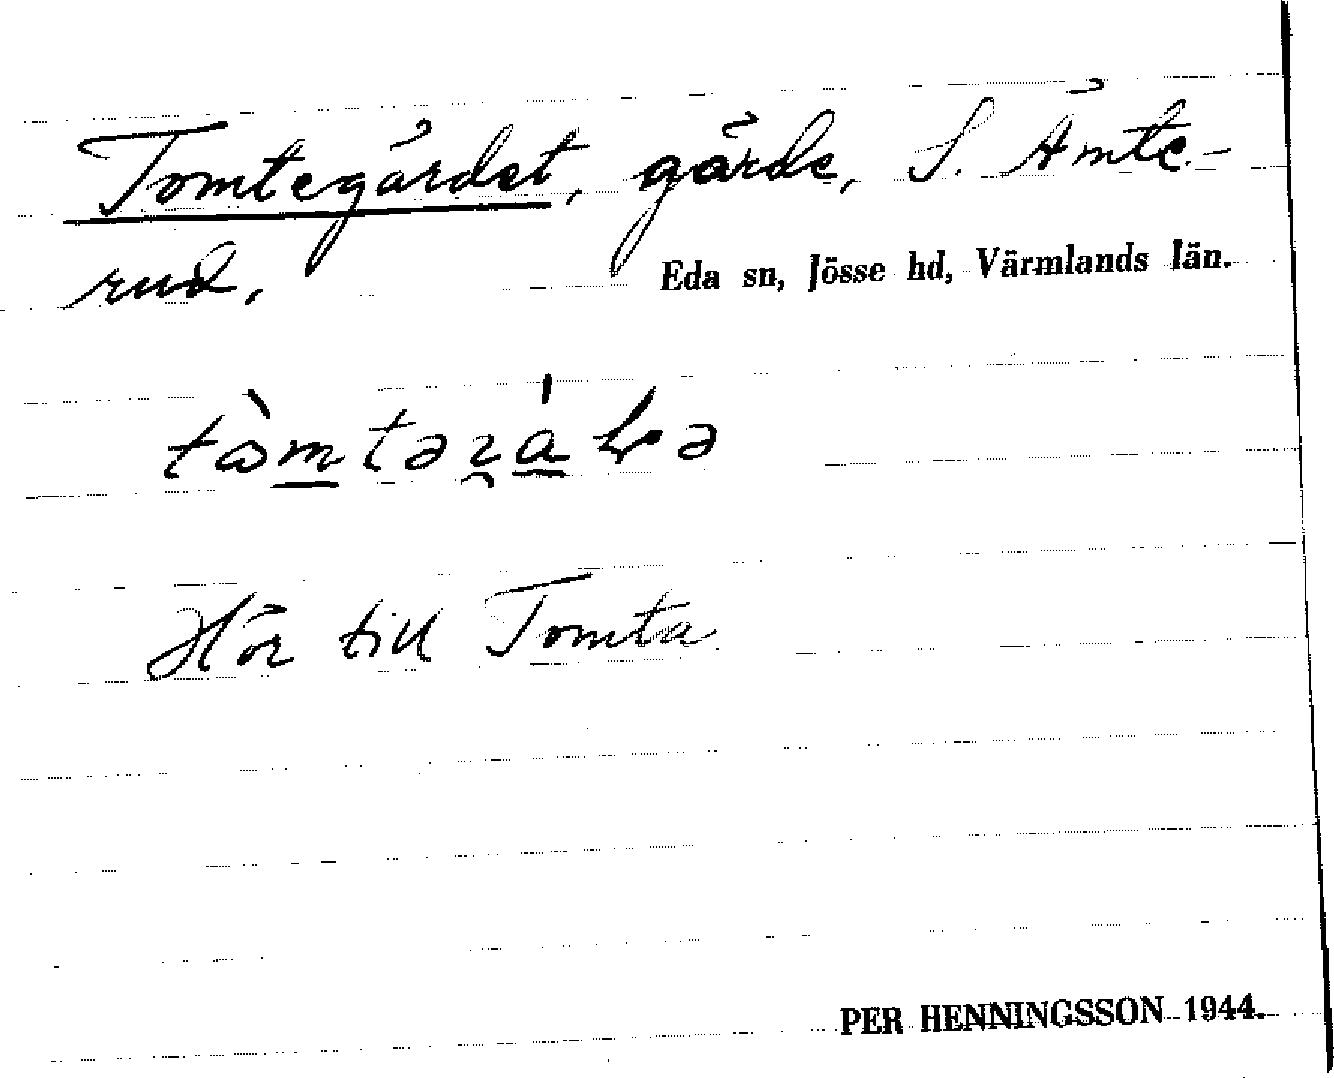 Tomtegärdet, gärde, S. Ämte-
rud,
Eda sn, Jösse hd, Värmlands län.
Hör till Tomta
PER HENNINGSSON 1944.